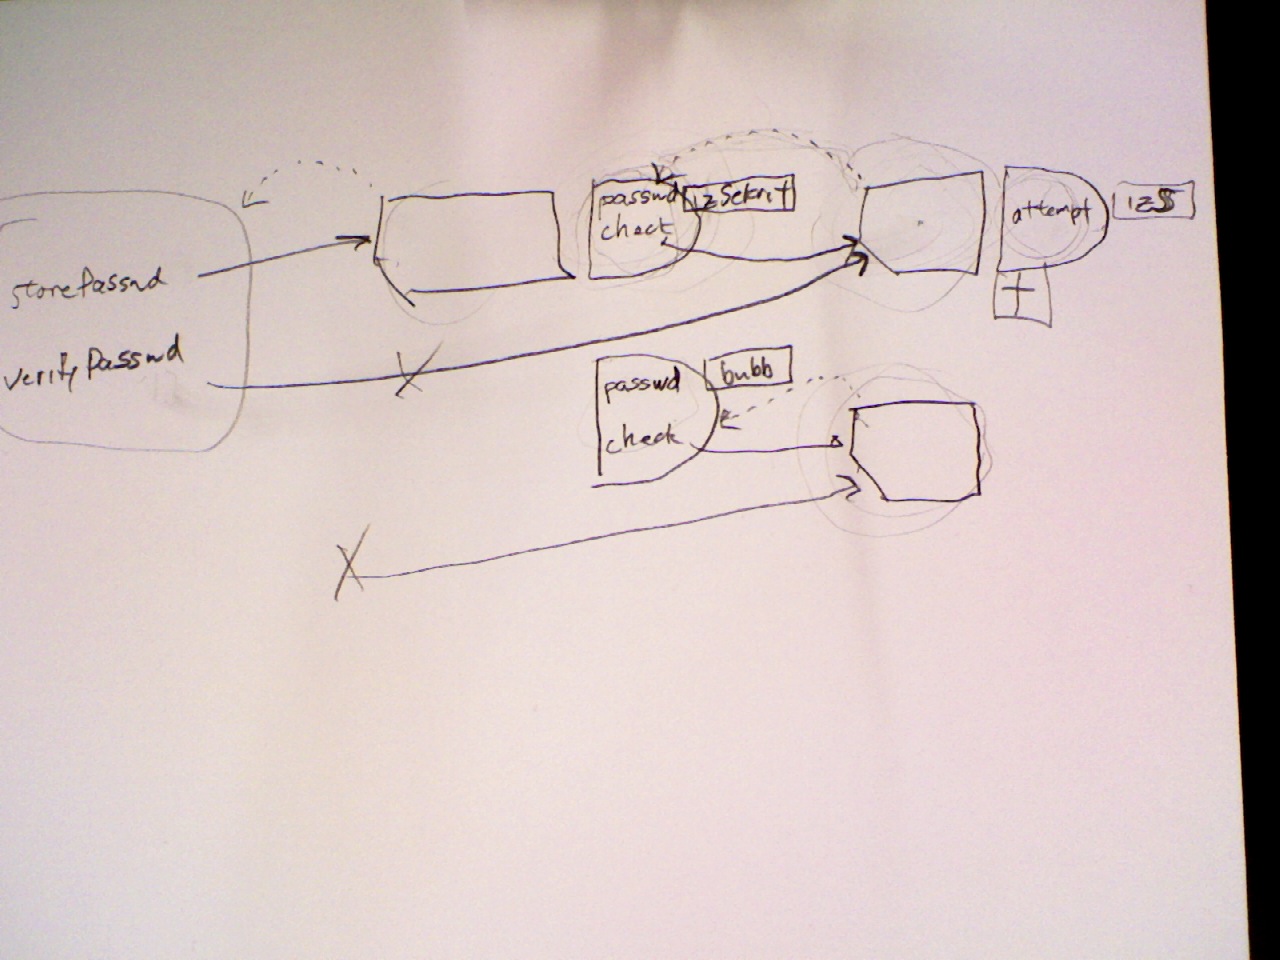 storePasswd
verifyPasswd
passwd
check
izSekrit
attempt
izS
T
passwd
check
bubb